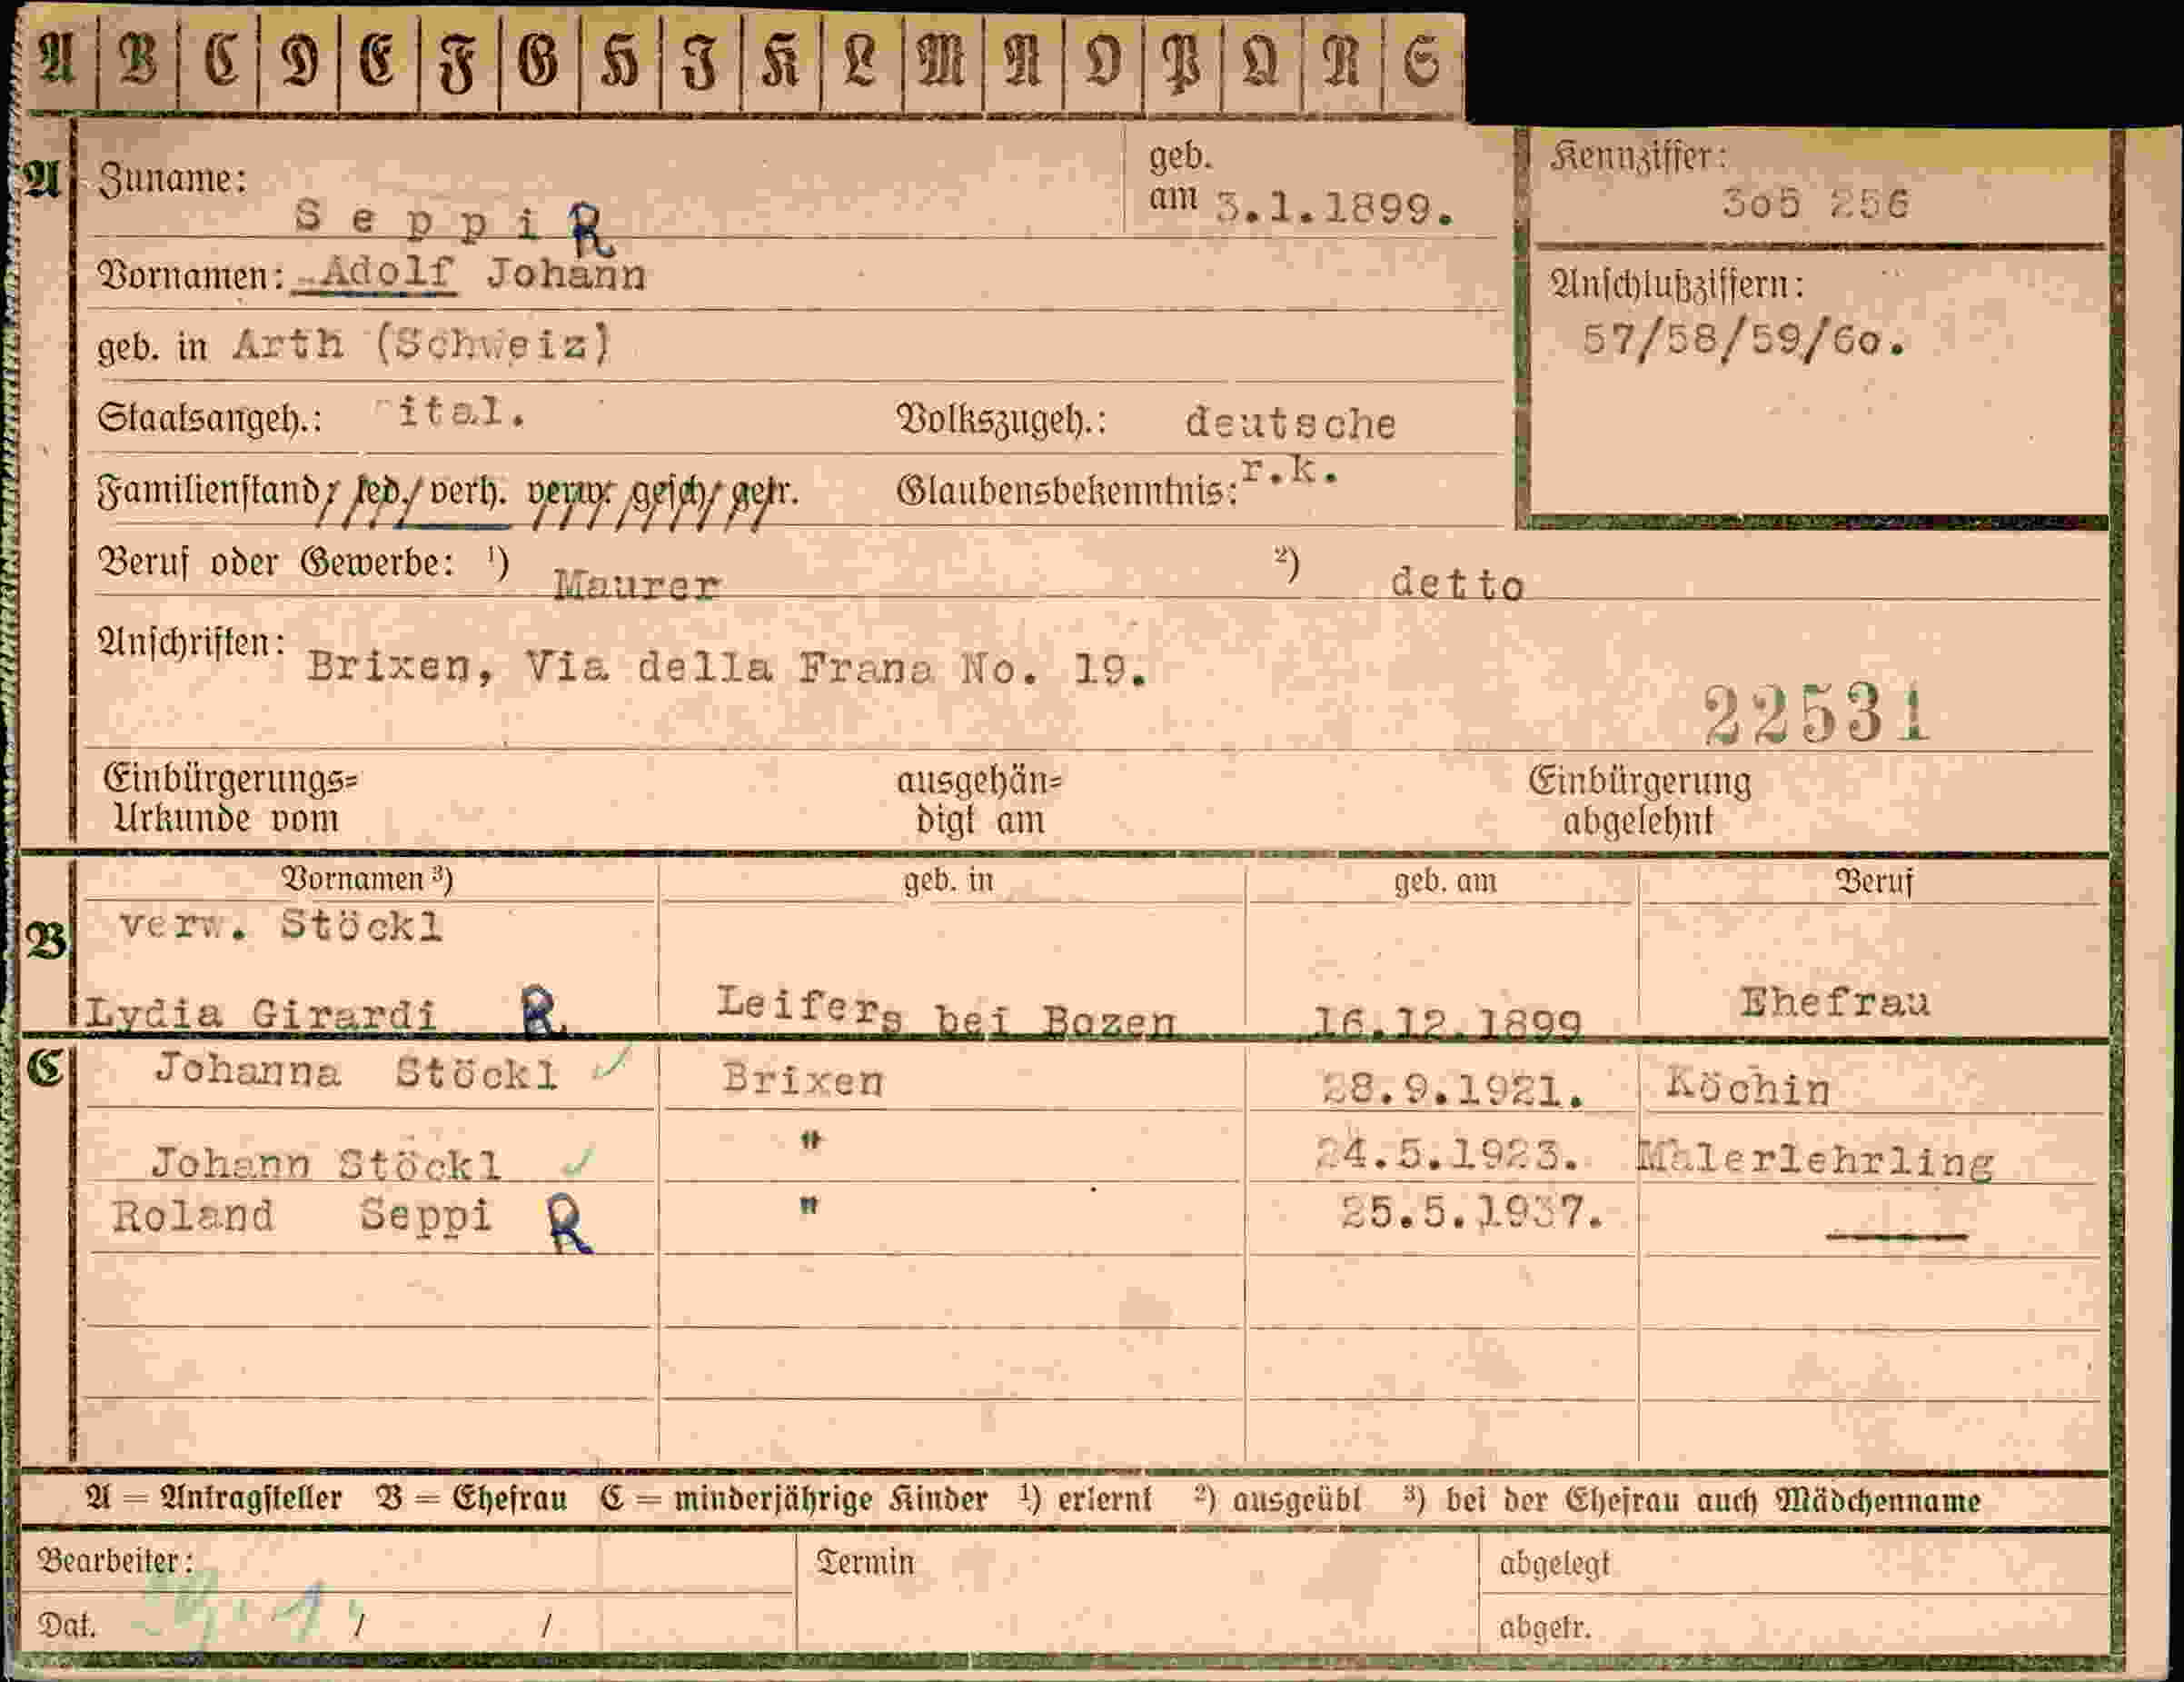 A B C D E F G H I K L M N O P Q R S
A Zuname: Seppi R geb. am 3.1.1899. Kennziffer: 3o5 256
Vornamen: Adolf Johann Anschlußziffern:
geb. in Arth (Schweiz) 57/58/59/6o.
Staatsangeh.: ital. Volkszugeh.: deutsche
Familienstand: led./ verh. verw. gesch. getr. Glaubensbekenntnis: r.k.
Beruf oder Gewerbe: ¹) Maurer ²) detto
Anschriften: Brixen, Via della Frana No. 19.
22531
Einbürgerungs= ausgehän= Einbürgerung
Urkunde vom digt am abgelehnt
Vornamen ³) geb. in geb. am Beruf
B verw. Stöckl
Lydia Girardi R Leifers bei Bozen 16.12.1899 Ehefrau
C Johanna Stöckl ✓ Brixen 28.9.1921. Köchin
Johann Stöckl ✓ " 24.5.1923. Malerlehrling
Roland Seppi R " 25.5.1937. —
A = Antragsteller B = Ehefrau C = minderjährige Kinder ¹) erlernt ²) ausgeübt ³) bei der Ehefrau auch Mädchenname
Bearbeiter: Termin abgelegt
Dat. / / abgetr.